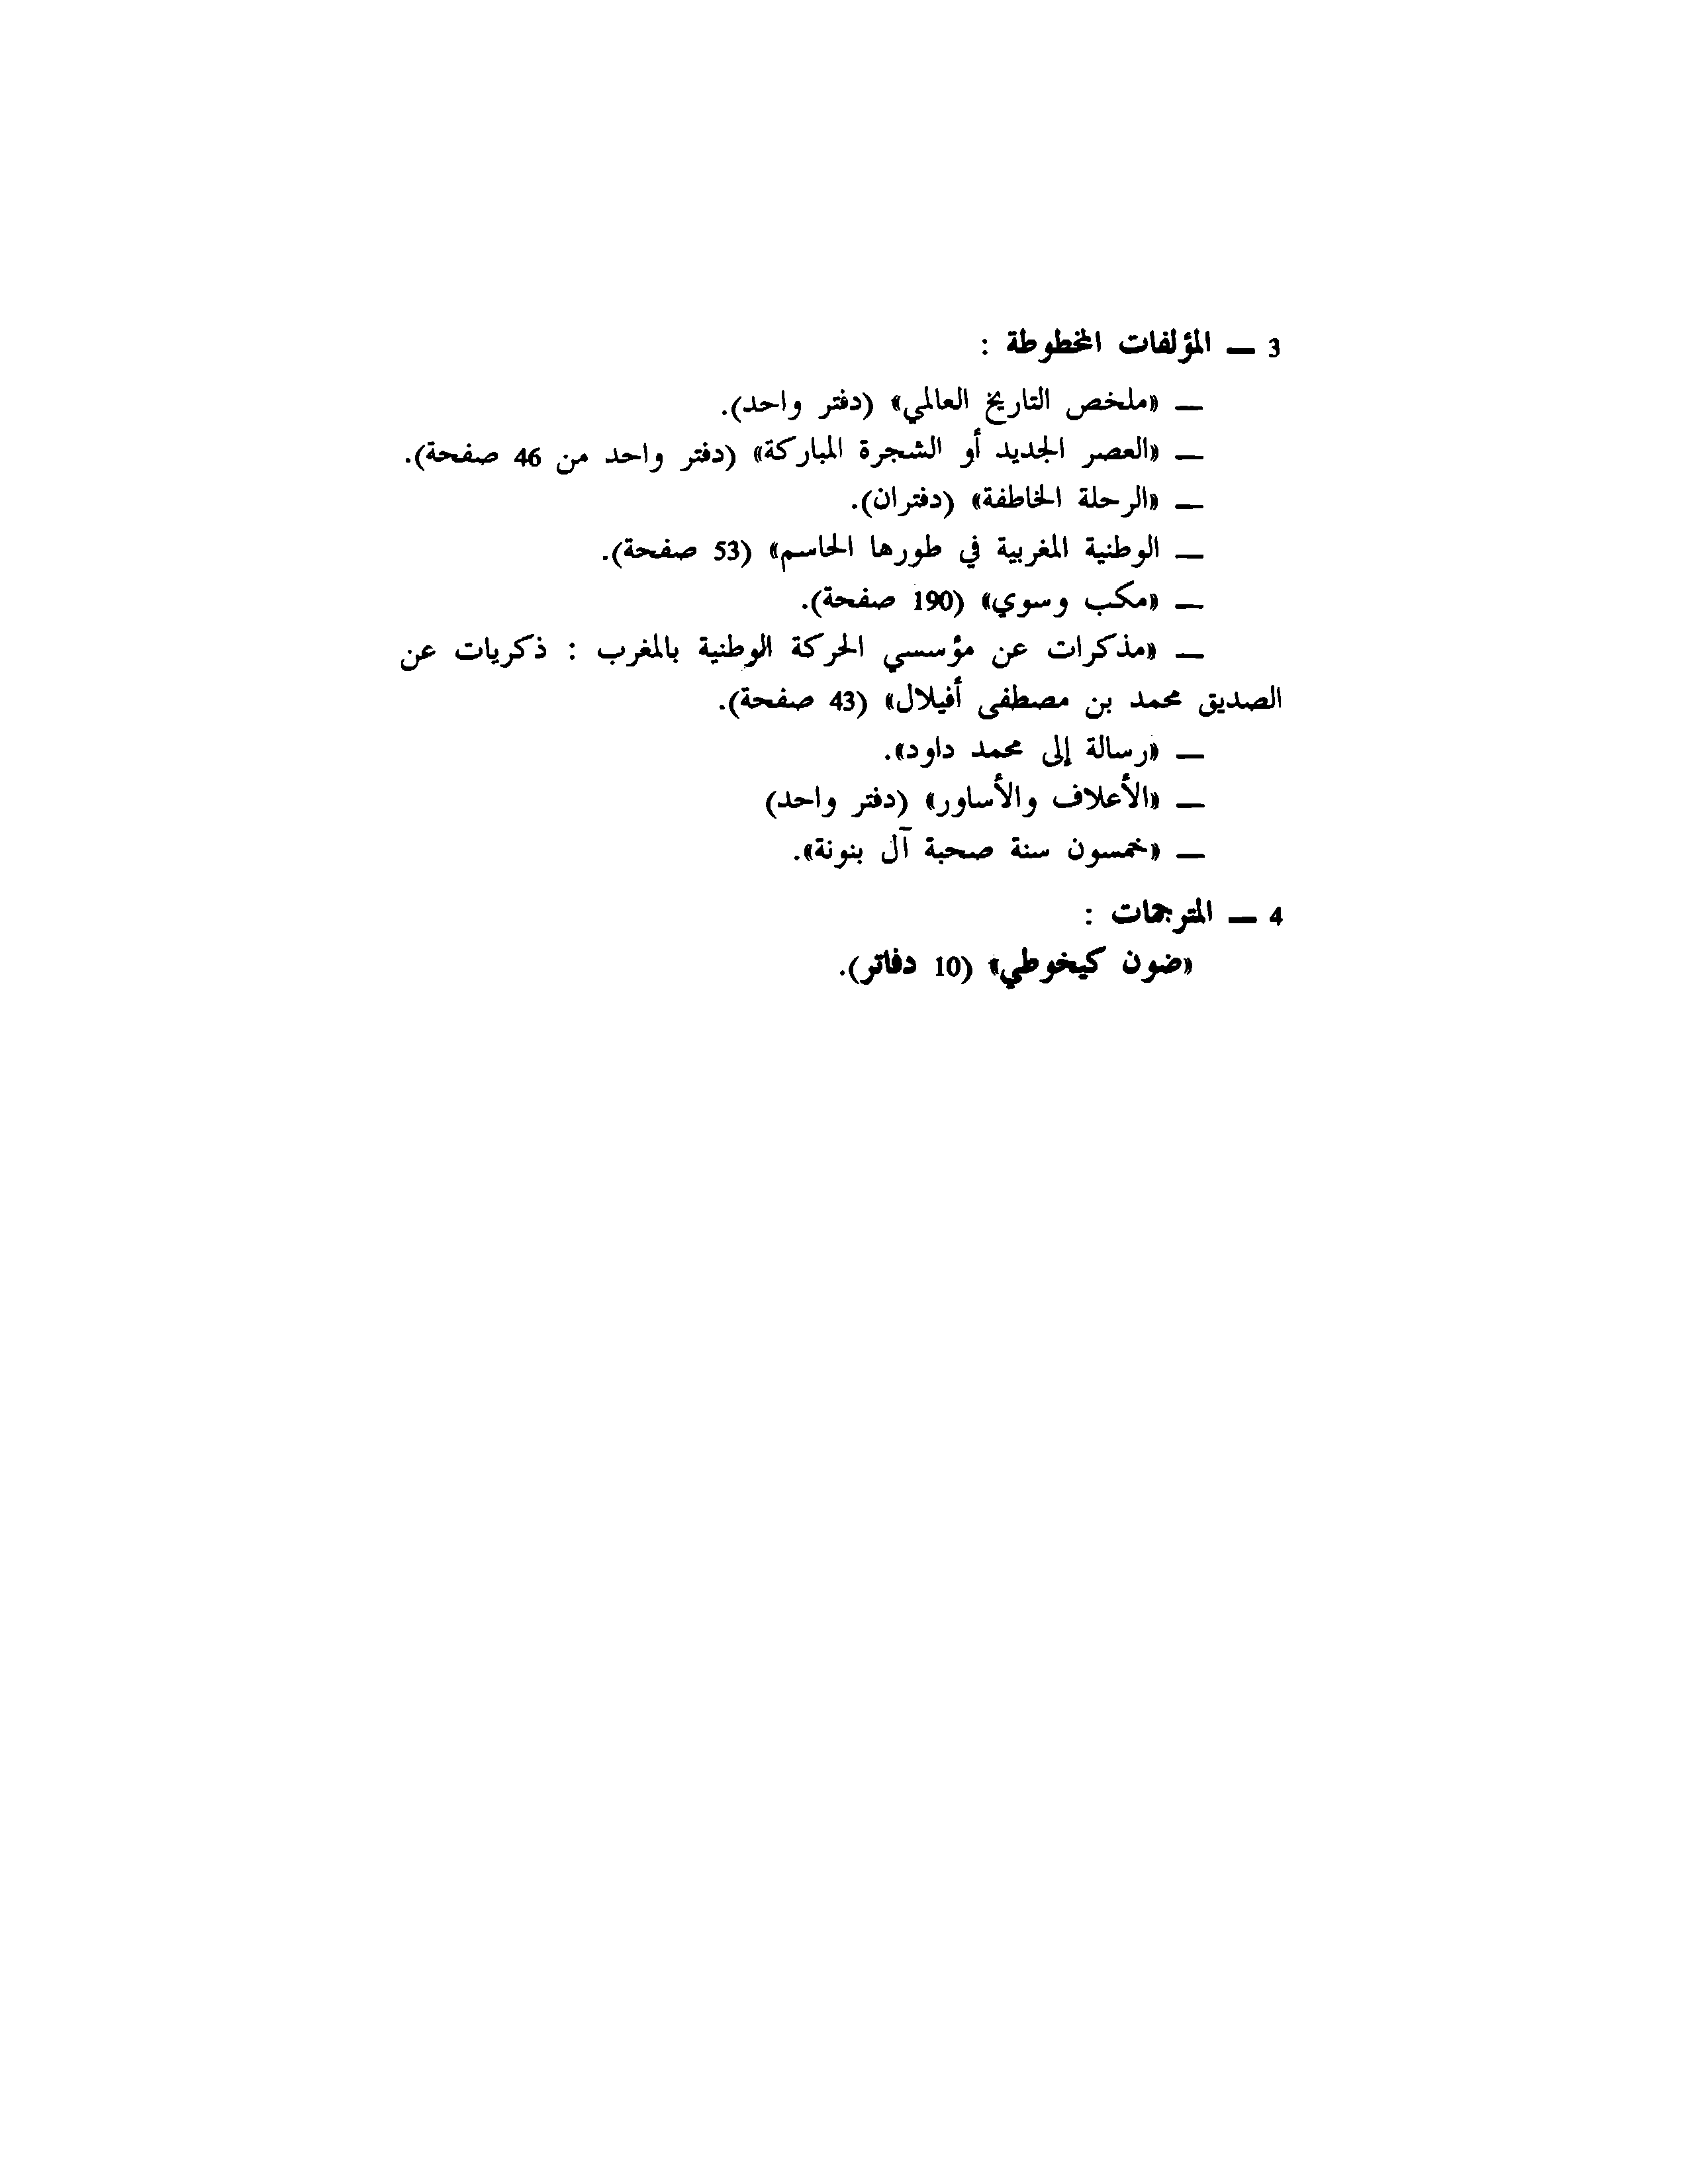 3 — المؤلفات المخطوطة :
— «ملخص التاريخ العالمي» (دفتر واحد).
— «العصر الجديد أو الشجرة المباركة» (دفتر واحد من 46 صفحة).
— «الرحلة الخاطفة» (دفتران).
— الوطنية المغربية في طورها الحاسم» (53 صفحة).
— «مكب وسوي» (190 صفحة).
— «مذكرات عن مؤسسي الحركة الوطنية بالمغرب : ذكريات عن
الصديق محمد بن مصطفى أفيلال» (43 صفحة).
— «رسالة إلى محمد داود».
— «الأعلاف والأساور» (دفتر واحد)
— «خمسون سنة صحبة آل بنونة».
4 — المترجمات :
«ضون كيخوطي» (10 دفاتر).